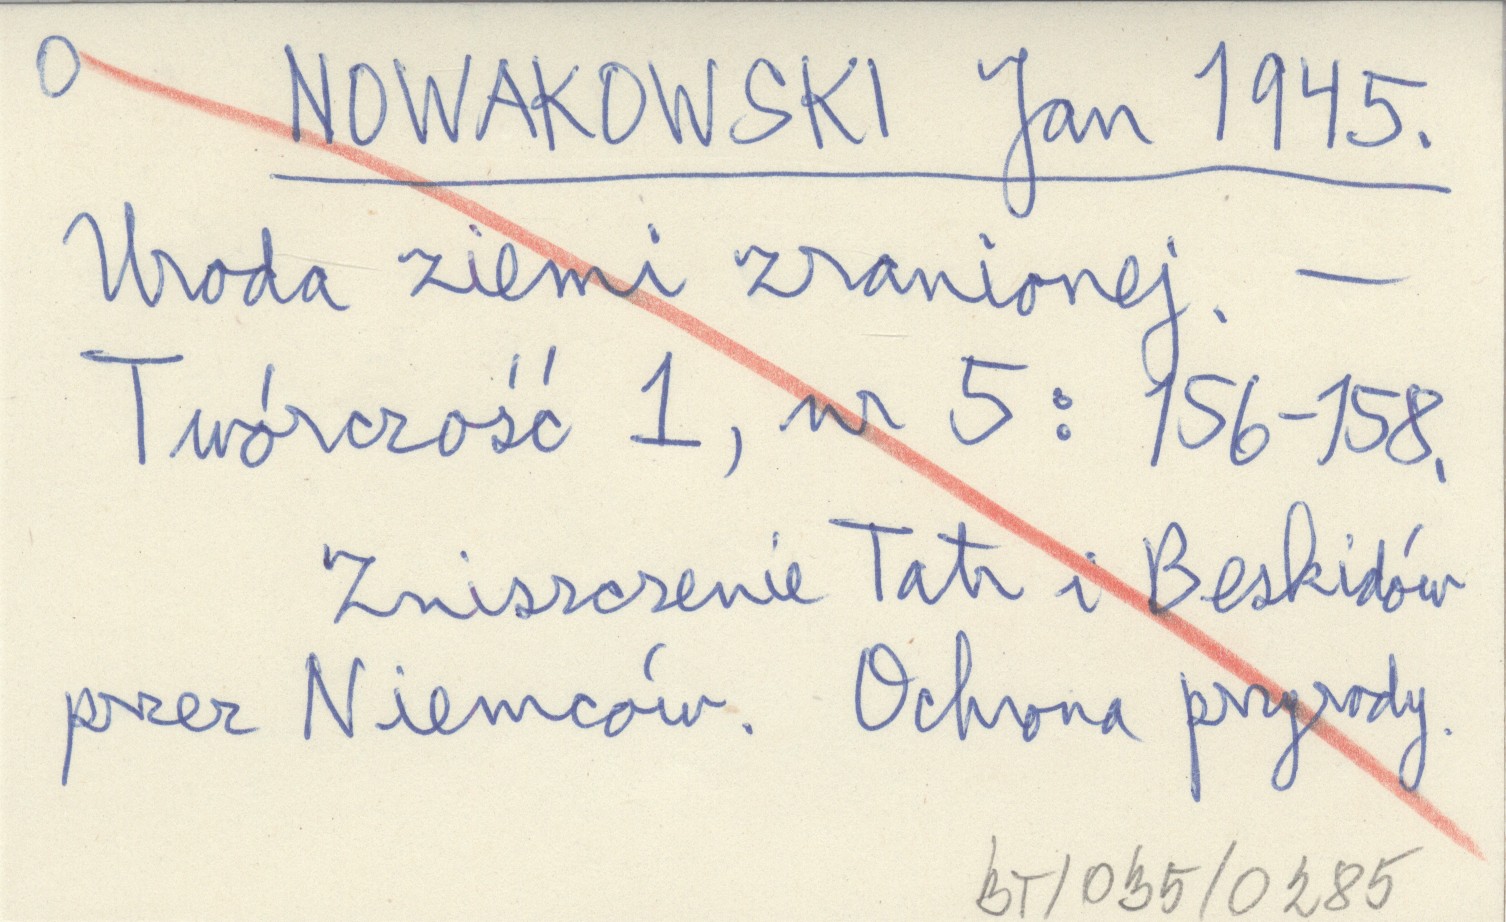 O NOWAKOWSKI Jan 1945.
Uroda ziemi zranionej. —
Twórczość 1, nr 5: 156-158.
Zniszczenie Tatr i Beskidów
przez Niemców. Ochrona przyrody.
BT/035/0285